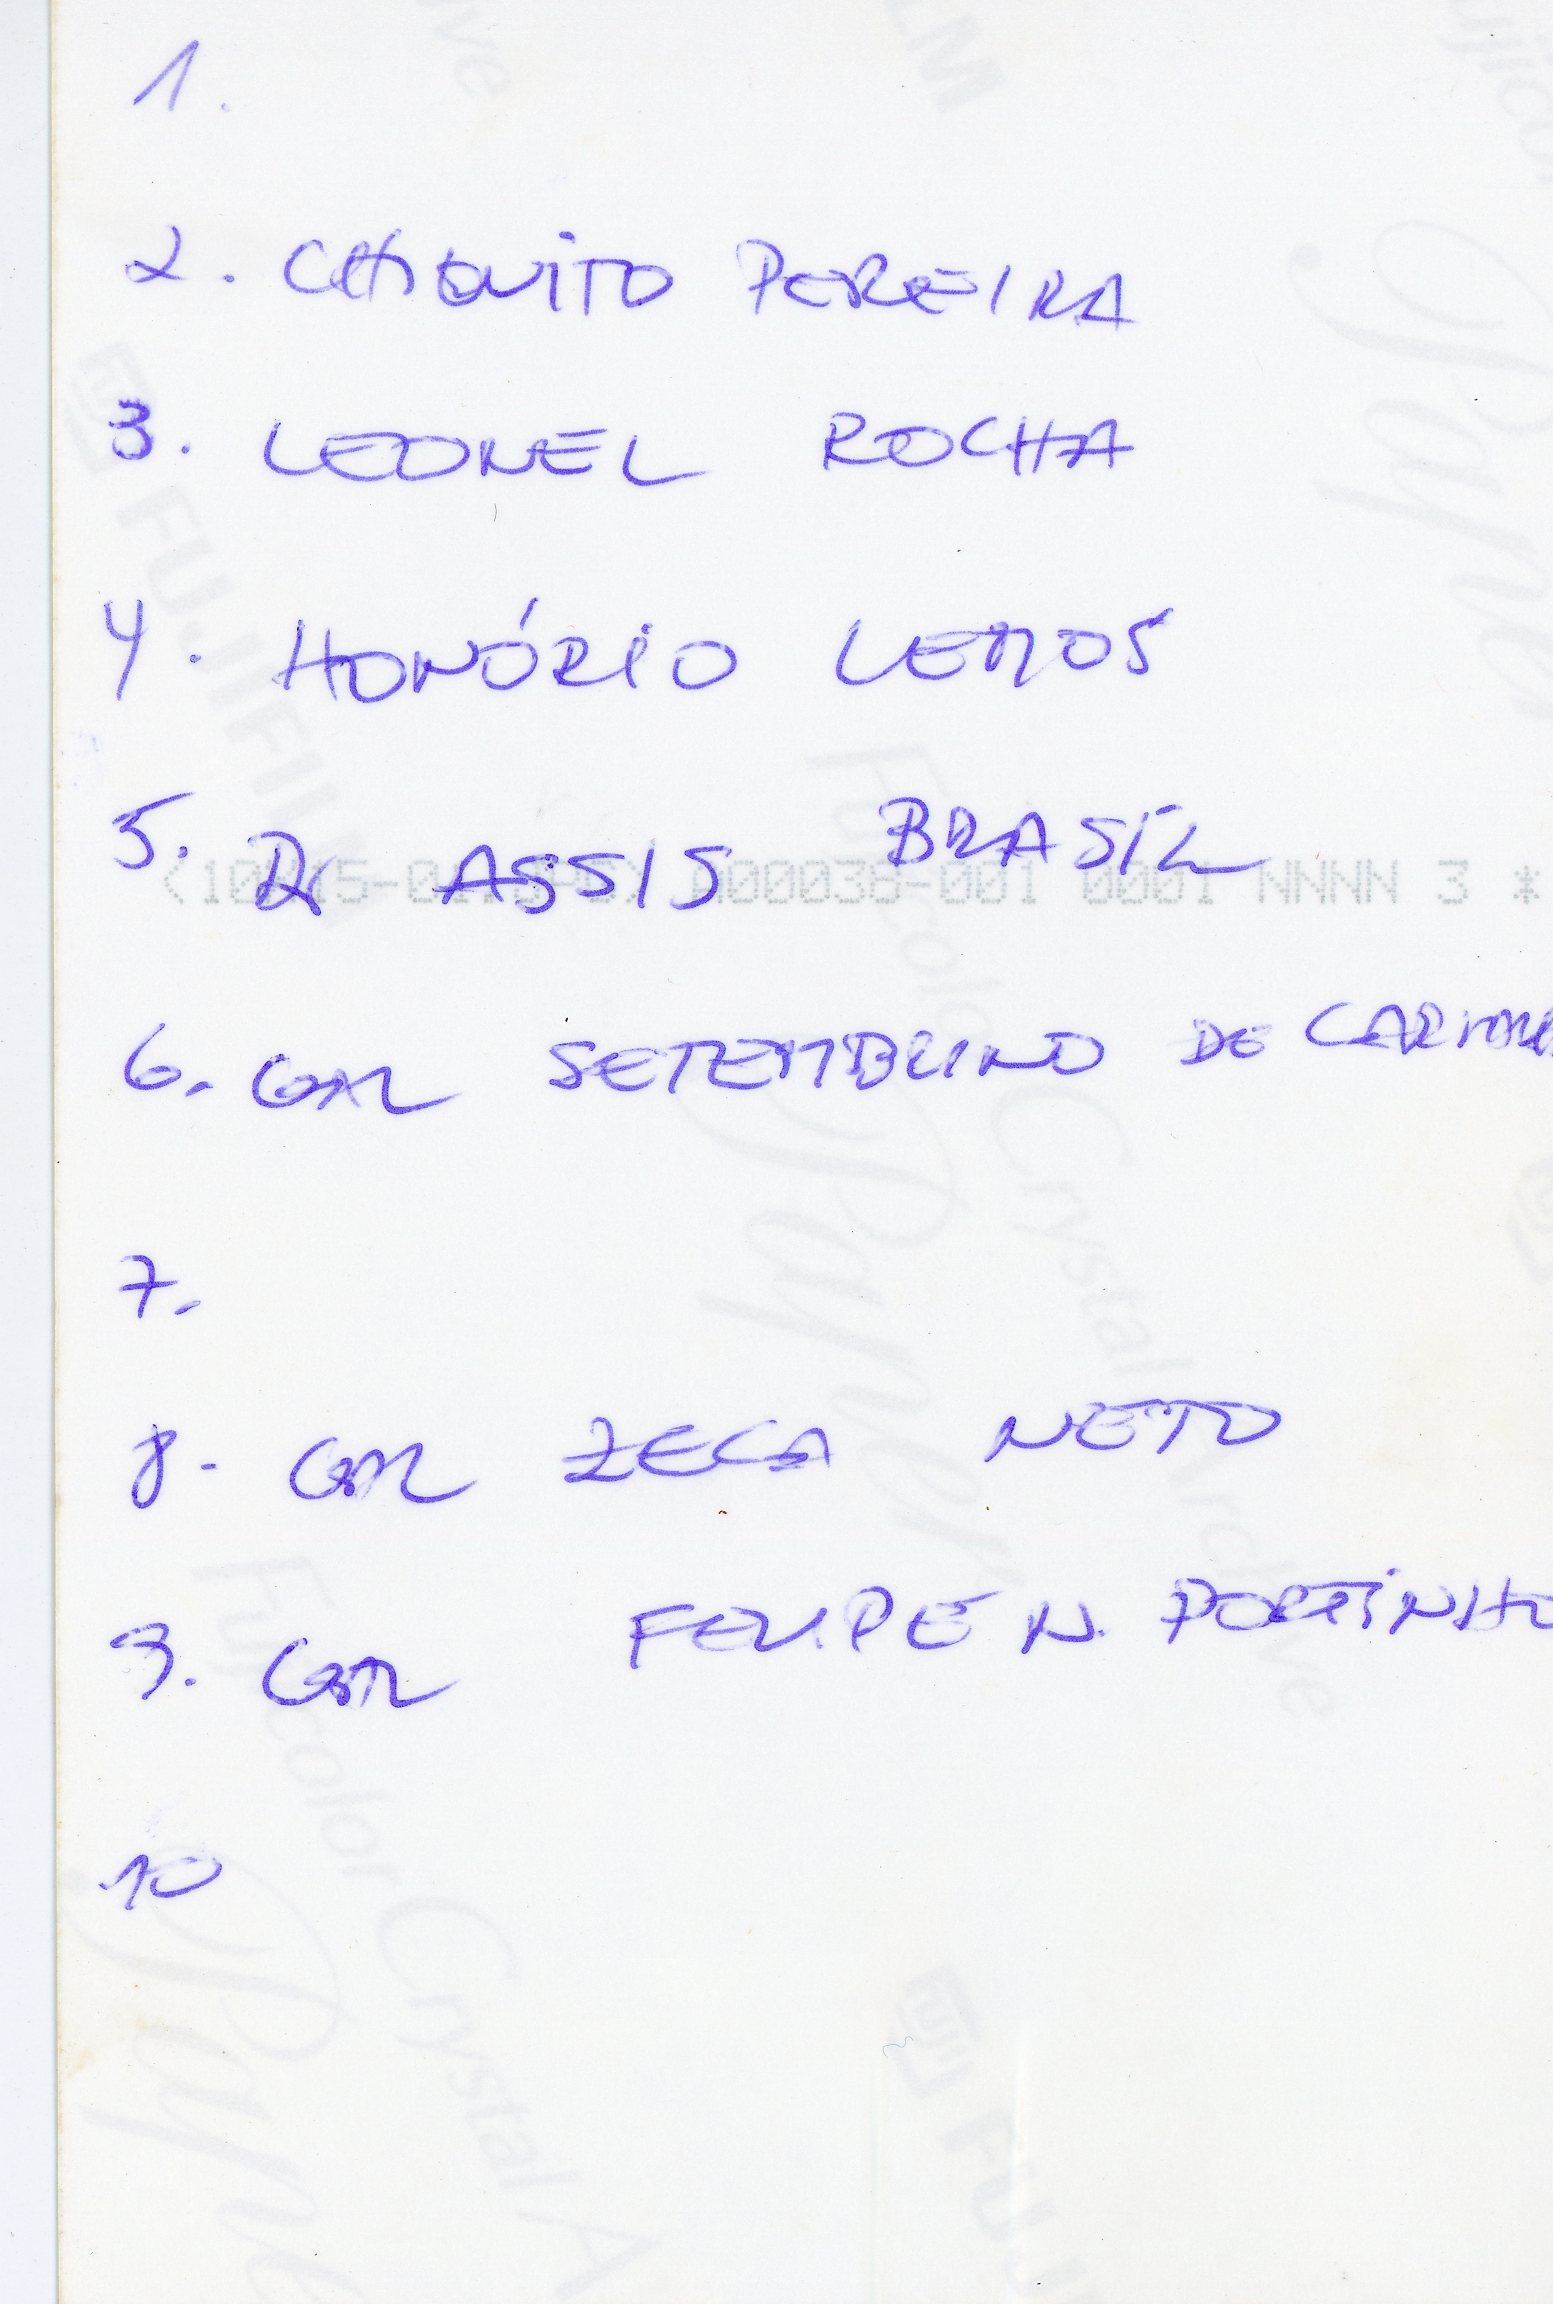 1.
2. CHIQUITO PEREIRA
3. LEONEL ROCHA
4. HONÓRIO LEMOS
5. DR ASSIS BRASIL
(10 0001 NNNN 3 *
6. GAL SETEMBRINO DE
7.
8. GAL ZECA NETO
9. GAL FELIPE N. PORTINHO
10
FUJIFILM
Fujicolor Crystal Archive
Paper